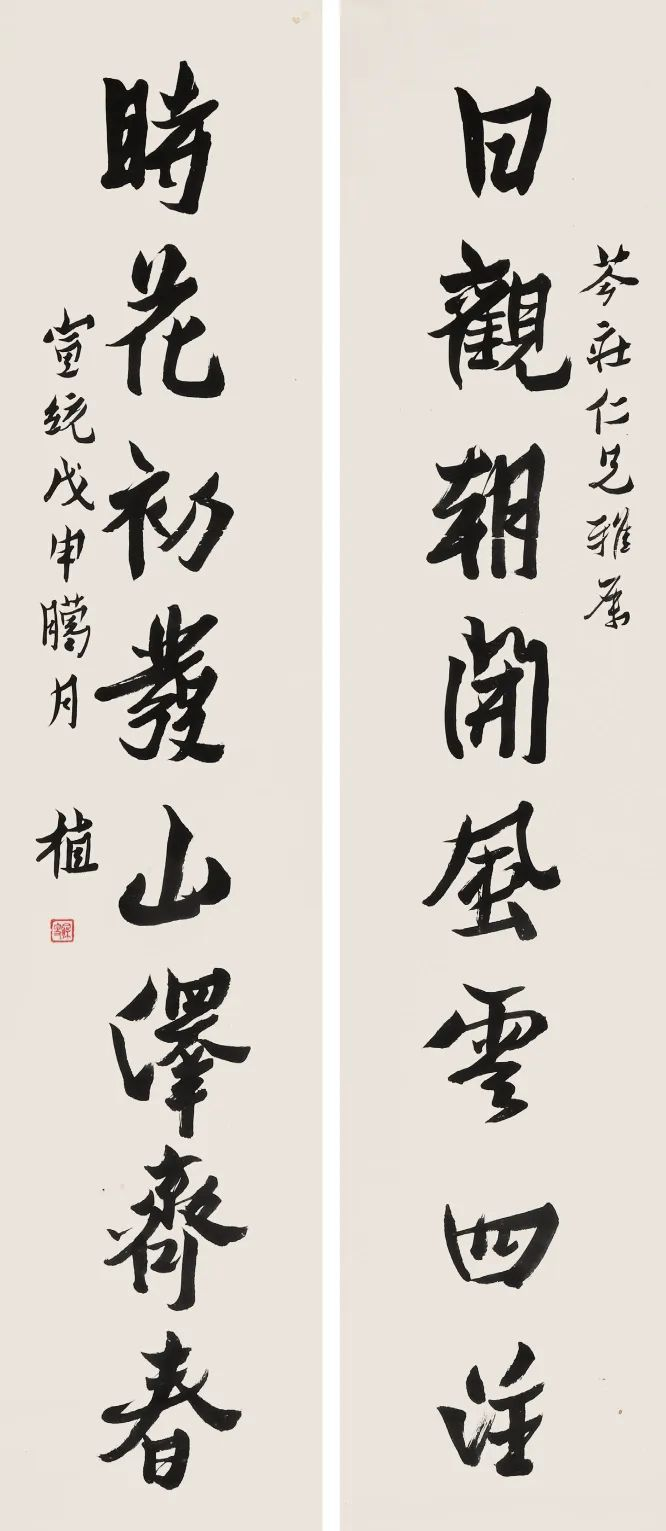 芩莊仁兄雅屬
日觀朝開風雲四注
時花初發山澤齊春
宣統戊申臈月 植